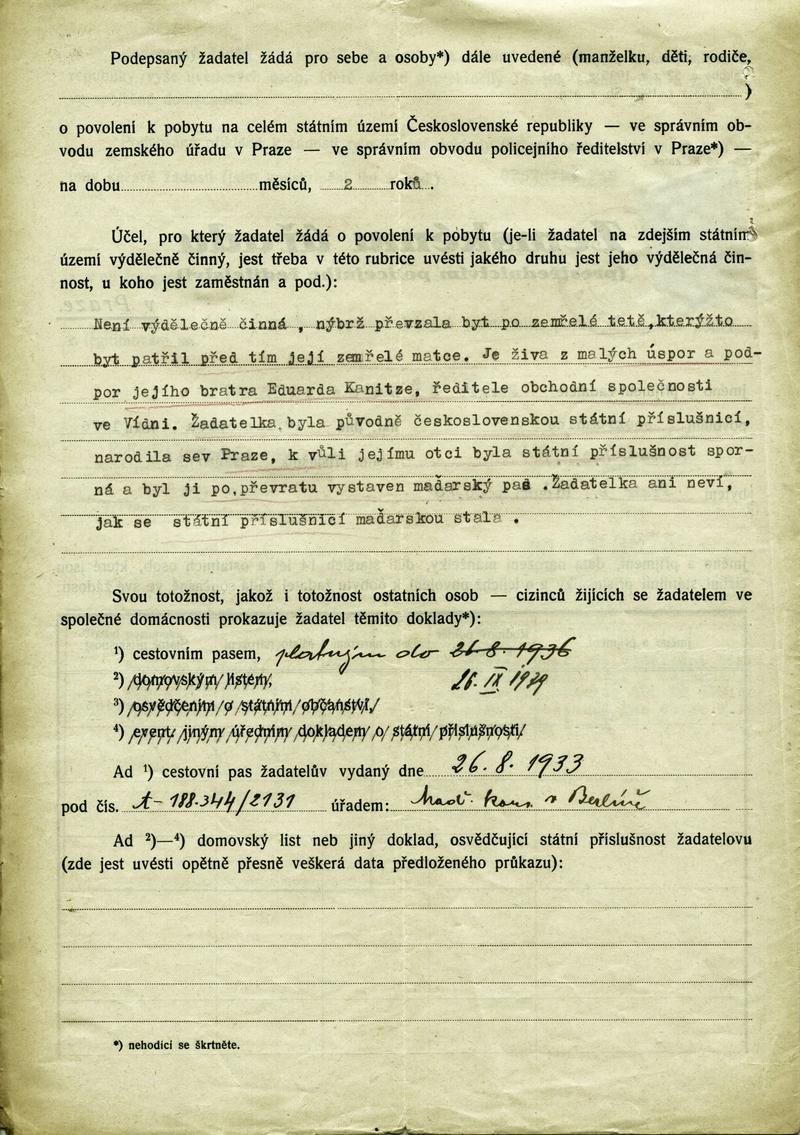 Podepsaný žadatel žádá pro sebe a osoby*) dále uvedené (manželku, děti, rodiče,
)
o povolení k pobytu na celém státním území Československé republiky — ve správním ob-
vodu zemského úřadu v Praze — ve správním obvodu policejního ředitelství v Praze*) —
na dobu měsíců, 2 roků.
Účel, pro který žadatel žádá o povolení k pobytu (je-li žadatel na zdejším státním
území výdělečně činný, jest třeba v této rubrice uvésti jakého druhu jest jeho výdělečná čin-
nost, u koho jest zaměstnán a pod.):
Není výdělečně činná , nýbrž převzala byt po zemřelé tetě,kterýžto
byt patřil před tím její zemřelé matce. Je živa z malých úspor a pod-
por jejího bratra Eduarda Kanitze, ředitele obchodní společnosti
ve Vídni. Žadatelka byla původně československou státní příslušnicí,
narodila sev Praze, k vůli jejímu otci byla státní příslušnost spor-
ná a byl ji po převratu vystaven maďarský pas .Žadatelka ani neví,
jak se státní příslušnicí maďarskou stala .
Svou totožnost, jakož i totožnost ostatních osob — cizinců žijících se žadatelem ve
společné domácnosti prokazuje žadatel těmito doklady*):
¹) cestovním pasem, platným do 26.8.1936
²) domovským listem, 26.IX 1939
³) osvědčením o státním občanství,
⁴) event. jiným úředním dokladem o státní příslušnosti
Ad ¹) cestovní pas žadatelův vydaný dne 26. 8. 1933
pod čís. A-188.344/2131 úřadem: Maď. kons. v Berlíně
Ad ²)—⁴) domovský list neb jiný doklad, osvědčující státní příslušnost žadatelovu
(zde jest uvésti opětně přesně veškerá data předloženého průkazu):
*) nehodící se škrtněte.